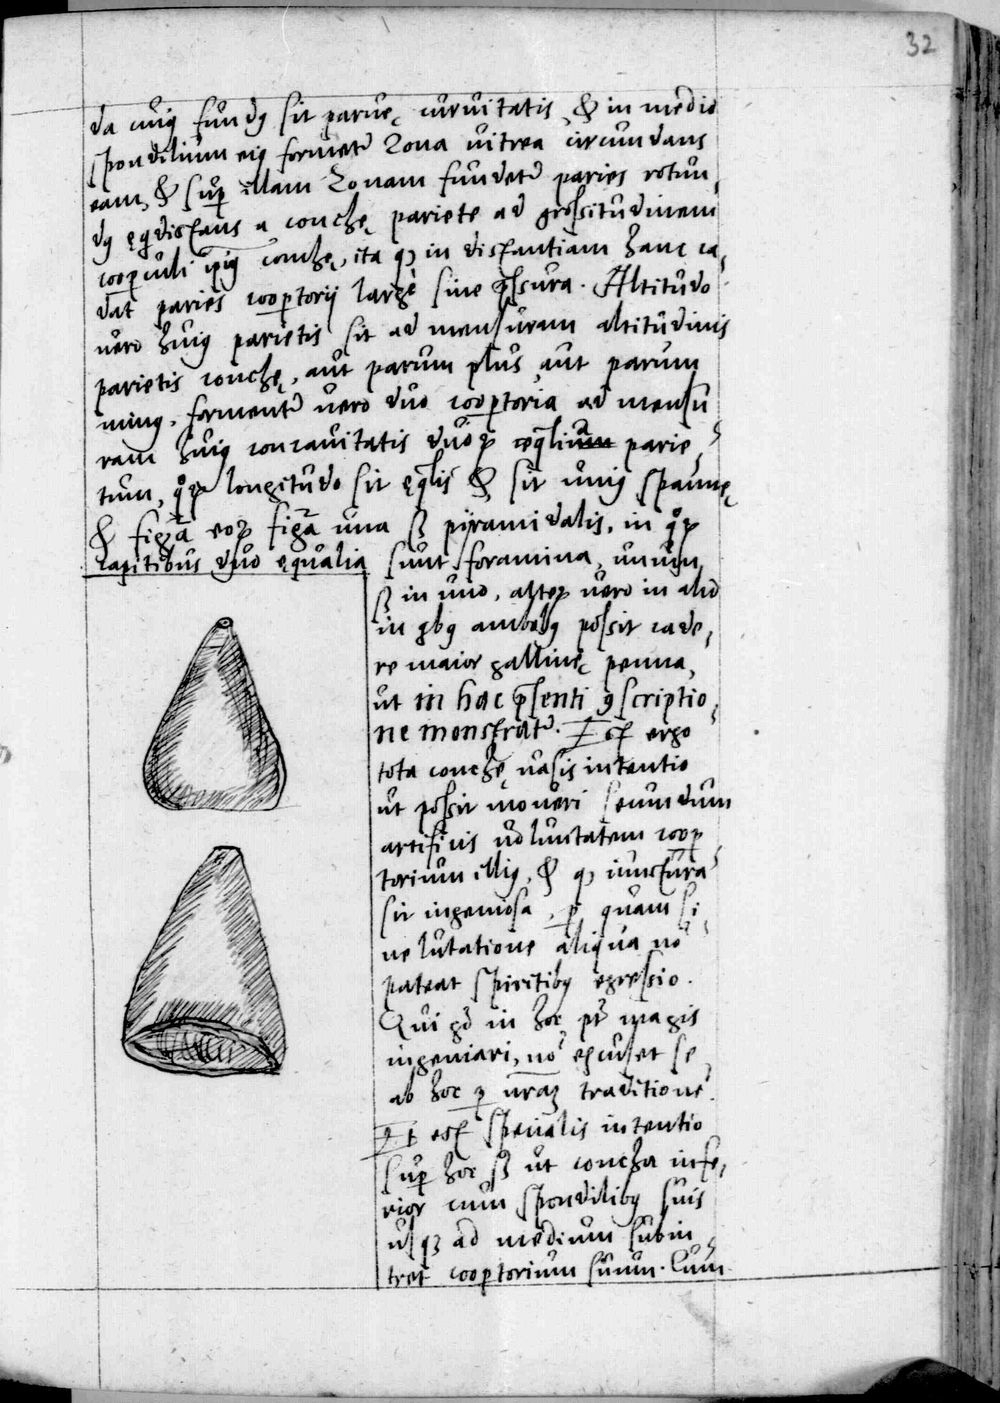 32
da cuiꝯ fundꝯ sit parvę curvitatis, & in medio
spondilium eiꝯ formet᷑ Zona vitrea circumdans
eam, & suꝑ illam Zonam fundet᷑ paries rotun,
dꝯ ęqdistans a conchę pariete ad grossitudinem
cooꝑculi ipsiꝯ conchę, ita qꝫ in distantiam hanc ca,
dat paries cooꝑtorij largè sine p̃ssura. Altitudo
vero huiꝯ parietis sit ad mensuram altitudinis
parietis conchę, aut parum plus, aut parum
minꝯ. formentᷣ vero duo cooꝑtoria ad mensu
ram huiꝯ concavitatis duoꝝ ęqliũ parie,
tum, quoꝝ longitudo sit ęqlis & sit uniꝯ spannę
& figã eoꝝ figã una sꝫ pÿramidalis, in quoꝝ
capitibus duo ęqualia sunt foramina, unum
sꝫ in uno, alteꝝ vero in alio
in qbꝯ ambobꝯ possit cade,
re maior gallinę penna,
ut in hac p̃senti ꝯscriptio,
ne monstrat᷑. Est ergo
tota conchę vasis intentio
ut possit moveri secundum
artificis voluntatem cooꝑ
torium illiꝯ, & qꝫ iunctura
sit ingeniosa, ꝑ quam si,
ne lutatione aliqua nõ
pateat spiritibꝯ egressio.
Qui qd in hoc pt̃ magis
ingeniari, nõ excuset se
ab hoc ꝑ nrãꝫ traditionẽ.
Et est specialis intentio
suꝑ hoc sꝫ ut concha infe,
rior cum spondilibꝯ suis
usqꝫ ad medium subin
tret cooꝑtorium suum. Cum